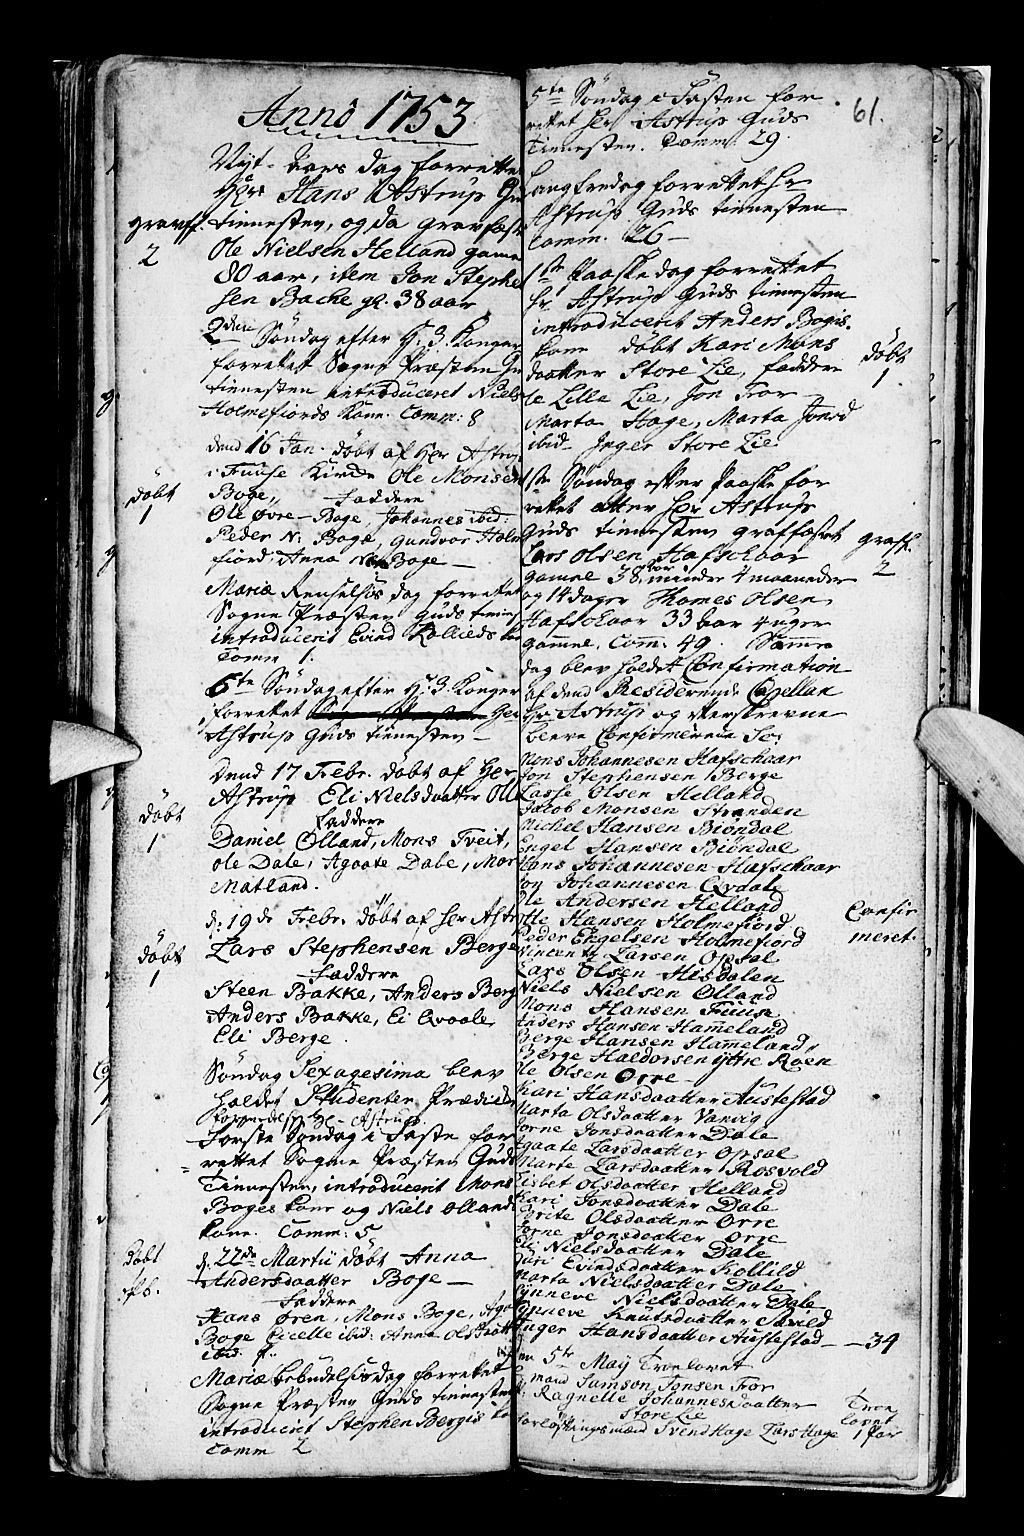 Anno 1753
Nyt-Aars dag forrettet
Herr Hans Astrup Gu
gravf. tienesten, og da gravfæst
2
Ole Nielsen Helland gamel
80 aar, item Jon Stephen
sen Bache gl. 38 aar
2den Søndag efter H. 3 Konger
forrettet Sogne Præsten Gu
tienesten introduceret Niels
Holmefiords Kone. Comm: 8
dend 16 Jan. døbt af Her Astrup
i Fuuse Kirche Ole Monsen
døbt
1
Boge, Faddere
Ole øvre-Boge, Johannes ibid:
Peder N: Boge, Gundvor Holme
fiord, Anna N: Boge
Mariæ Renselsis dag forrettet
Sogne Præsten Guds tienest
introducerit Evind Kollieds ko
Comm 1.
6te Søndag efter H. 3 Konger
forrettet Her
Astrup Guds tienesten
Dend 17 Febr. døbt af Her
døbt
1
Astrup Eli Nielsdaatter Oll
Faddere
Daniel Ølland, Mons Tveit,
Ole Dale, Agaate Dale, Mar
Matland.
d: 19de Febr. døbt af Her Astr
døbt
1
Lars Stephensen Berge
Faddere
Steen Bakke, Anders Berg
Anders Bakke, Ei Qvaale
Eli Berge.
Søndag Sexagesima blev
holdet Studenter Prædiken
Hr. Astrup.
Første Søndag i Faste for
rettet Sogne Præsten Guds
Tienesten, introducerit Mons
Boges kone og Niels Ollands
kone. Comm: 5
døbt
d. 22de Martii døbt Anna
Andersdaatter Boge
Faddere
Hans Øren, Mons Boge, Aga
Boge Cicelle ibid: Anna Olsdatt
ibid:
Mariæ bebudelsisdag forrettet
Sogne Præsten Guds tienesten
introducerit Stephen Bergis ko
Comm 2
61.
5te Søndag i Fasten for
rettet Hr Astrup Guds
Tienesten. Comm. 29
Langfredag forrettet Hr
Astrup Guds tienesten
Comm. 26
1ste Paaskedag forrettet
Hr Astrup Guds tienesten
introducerit Anders Bogis
kone døbt Kari Mons
døbt
1
daatter Store Lie, faddere
Ole Lille Lie, Jon Tror
Marta Hage, Marta Jonsd
ibid Inger Store Lie
1ste Søndag efter Paaske for
rettet atter Hr Astrup
Guds tienesten graffæstet
graff.
2
Lars Olsen Hafschaar
gamel 38 aar, minder 4 maaneder
og 14 dager Thomes Olsen
Hafskaar 33 aar 4 uger
gammel. Com. 49. Samme
dag blev holdet Confirmation
af dend Residerende Capellan
Hr Astrup og efterskrevne
bleve Confirmerede So:
Mons Johannesen Hafschaar
Jon Stephensen Berge
Lasse Olsen Helland
Jacob Monsen Stranden
Michel Hansen Biøndal
Engel Hansen Biøndal
Hans Johannesen Hafschaar
Jon Johannesen Qvdale
Ole Andersen Helland
Ole Hansen Holmefiord
Confir
meret
Peder Engelsen Holmefiord
Vincentz Larsen Opsal
Lars Olsen Hisdalen
Niels Nielsen Ølland
Mons Hansen Fuuse
Anders Hansen Hameland
Berge Hansen Hameland
Berge Haldorsen ÿttre Røen
Ole Olsen Orre
Kari Hansdaatter Austestad
Marta Olsdaatter Vanvig
Jorne Jonsdaatter Dale
Agaate Larsdaatter Opsal
Marte Larsdaatter Rosvold
Lisbet Olsdaatter Helland
Kari Jonsdaatter Dale
Brite Olsdaatter Orre
Jorne Jonsdaatter Orre
Eli Nielsdaatter Dale
Guri Evindsdaatter Kollild
Marta Nielsdaatter Dale
Synneve Nielsdaatter Dale
Synneve Knutsdaatter
Inger Hansdaatter Austestad - 34
den 5te Maÿ Troelovet
Samson Jonsen Tror
Ragnelle Johannesdaatter
Store Lie
Troe
lovet
1 Par
forlovingsmænd Svend Hage Lars Hage